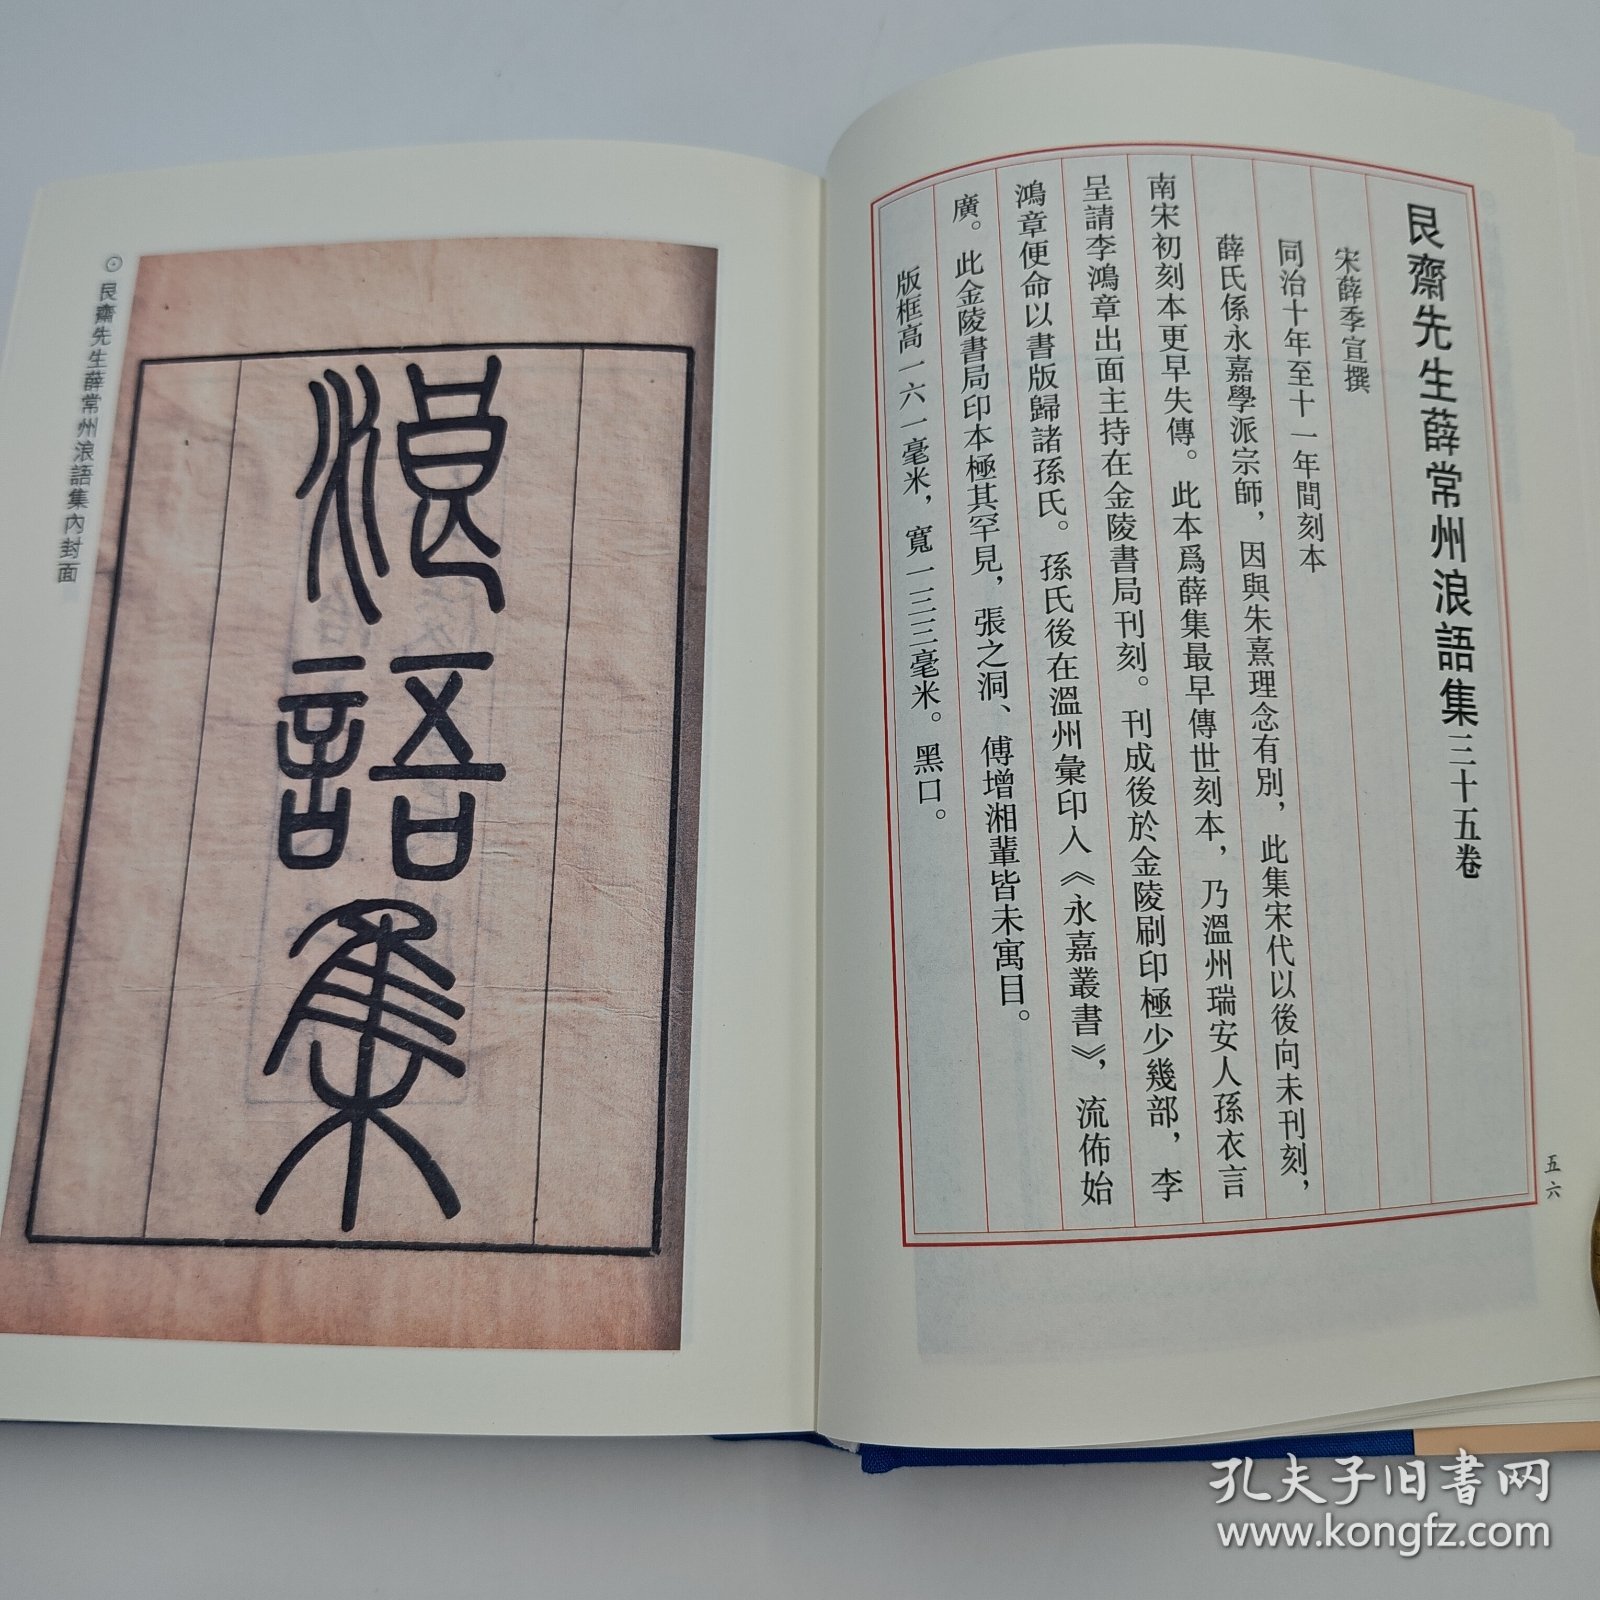 艮齋先生薛常州浪語集三十五卷
宋薛季宣撰
同治十年至十一年間刻本
薛氏係永嘉學派宗師，因與朱熹理念有別，此集宋代以後向未刊刻，
南宋初刻本更早失傳。此本爲薛集最早傳世刻本，乃溫州瑞安人孫衣言
呈請李鴻章出面主持在金陵書局刊刻。刊成後於金陵刷印極少幾部，李
鴻章便命以書版歸諸孫氏。孫氏後在溫州彙印入《永嘉叢書》，流佈始
廣。此金陵書局印本極其罕見，張之洞、傅增湘輩皆未寓目。
版框高一六一毫米，寬一三三毫米。黑口。
五六
浪語集
⊙艮齋先生薛常州浪語集內封面
孔夫子旧书网
www.kongfz.com